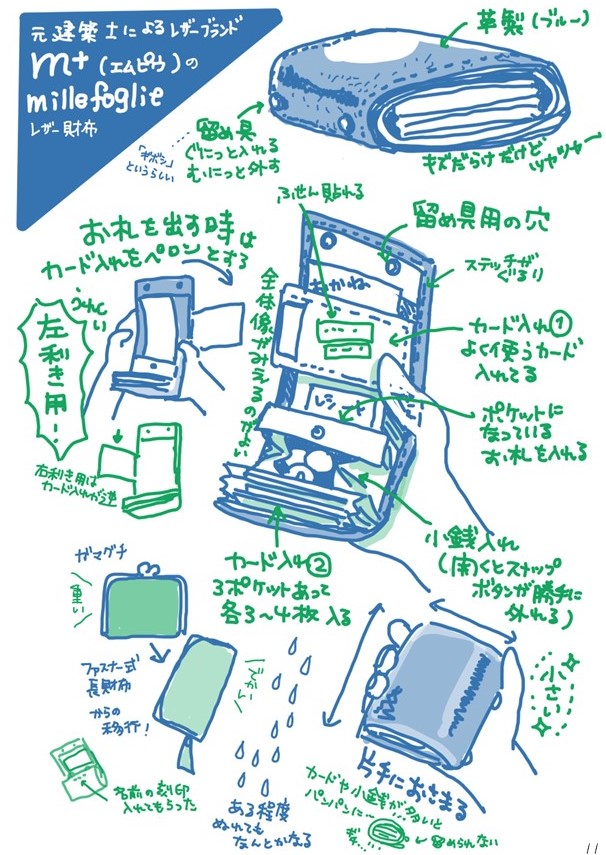 元建築士によるレザーブランド
m+(エムピウ)の
millefoglie
レザー財布
革製(ブルー)
留め具
ぐにっと入れる
むにっと外す
「ギボシ」
というらしい
キズだらけだけど
ツヤツヤ
ふせん貼れる
留め具用の穴
ステッチが
ぐるり
お札を出す時は
カード入れをペロンとする
全体像がみえるのだよい
おかね
カード入れ①
よく使うカード
入れてる
うれしい
左利き用ー!
レシート
ポケットに
なっている
お札を入れる
右利き用は
カード入れが逆
小銭入れ
(開くとスナップ
ボタンが勝手に
外れる)
カード入れ②
3ポケットあって
各3〜4枚入る
ガマグチ
重い
ファスナー式
長財布
からの
移行!
でかい
小さい
片手におさまる
名前の刻印
入れてもらった
ある程度
ぬれても
なんとかなる
カードや小銭が多いと
パンパンに〜
ギュ…
留められない
11